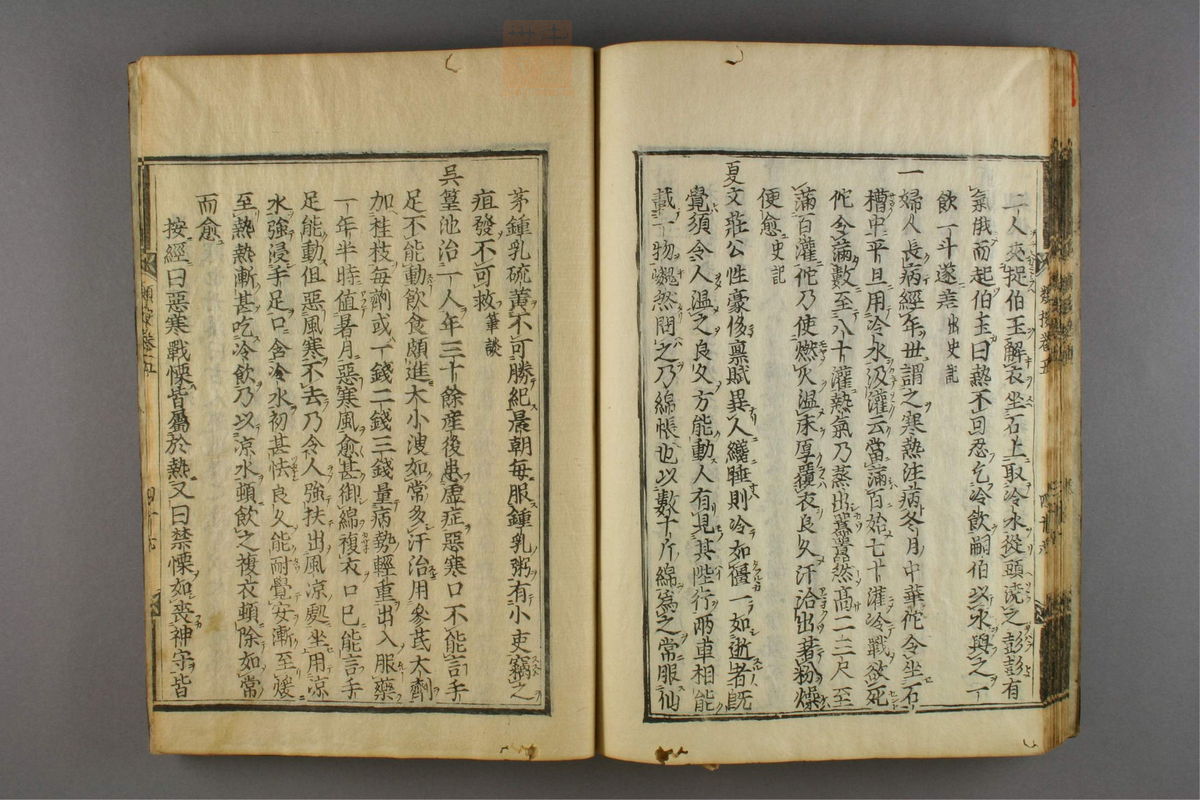 二人夾捉伯玉解衣坐石上取冷水從頭澆之彭彭有
氣俄而起伯玉曰熱不可忍乞冷飲嗣伯以水與之一
飲一斗遂差出史記
一婦人長病經年世謂之寒熱注病冬月中華佗令坐石
槽中平旦用冷水汲灌云當滿百始七十灌冷戰欲死
佗令滿數至八十灌熱氣乃蒸出囂囂然高二三尺至
滿百灌佗乃使燃火溫床厚覆衣良久汗洽出著粉燥
便愈史記
夏文莊公性豪侈稟賦異人纔睡則冷如僵一如逝者既
覺須令人溫之良久方能動人有見其陸行兩車相
載一物巍然問之乃綿帳也以數十斤綿為之常服仙
茅鍾乳硫黃不可勝紀晨朝每服鍾乳粥有小吏竊之
疽發不可救筆談
吳篁池治一人年三十餘產後患虛症惡寒口不能言手
足不能動飲食頗進大小溲如常多汗治用參芪大劑
加桂枝每劑或一錢二錢三錢量病勢輕重出入服藥
一年半時值暑月惡寒風愈甚御綿複衣口已能言手
足能動但惡風寒不去乃令人強扶出風涼處坐用涼
水強浸手足口含冷水初甚怯良久能耐覺安漸至煖
至熱熱漸甚吃冷飲乃以涼水頓飲之複衣頓除如常
而愈
按經曰惡寒戰慄皆屬於熱又曰禁慄如喪神守皆